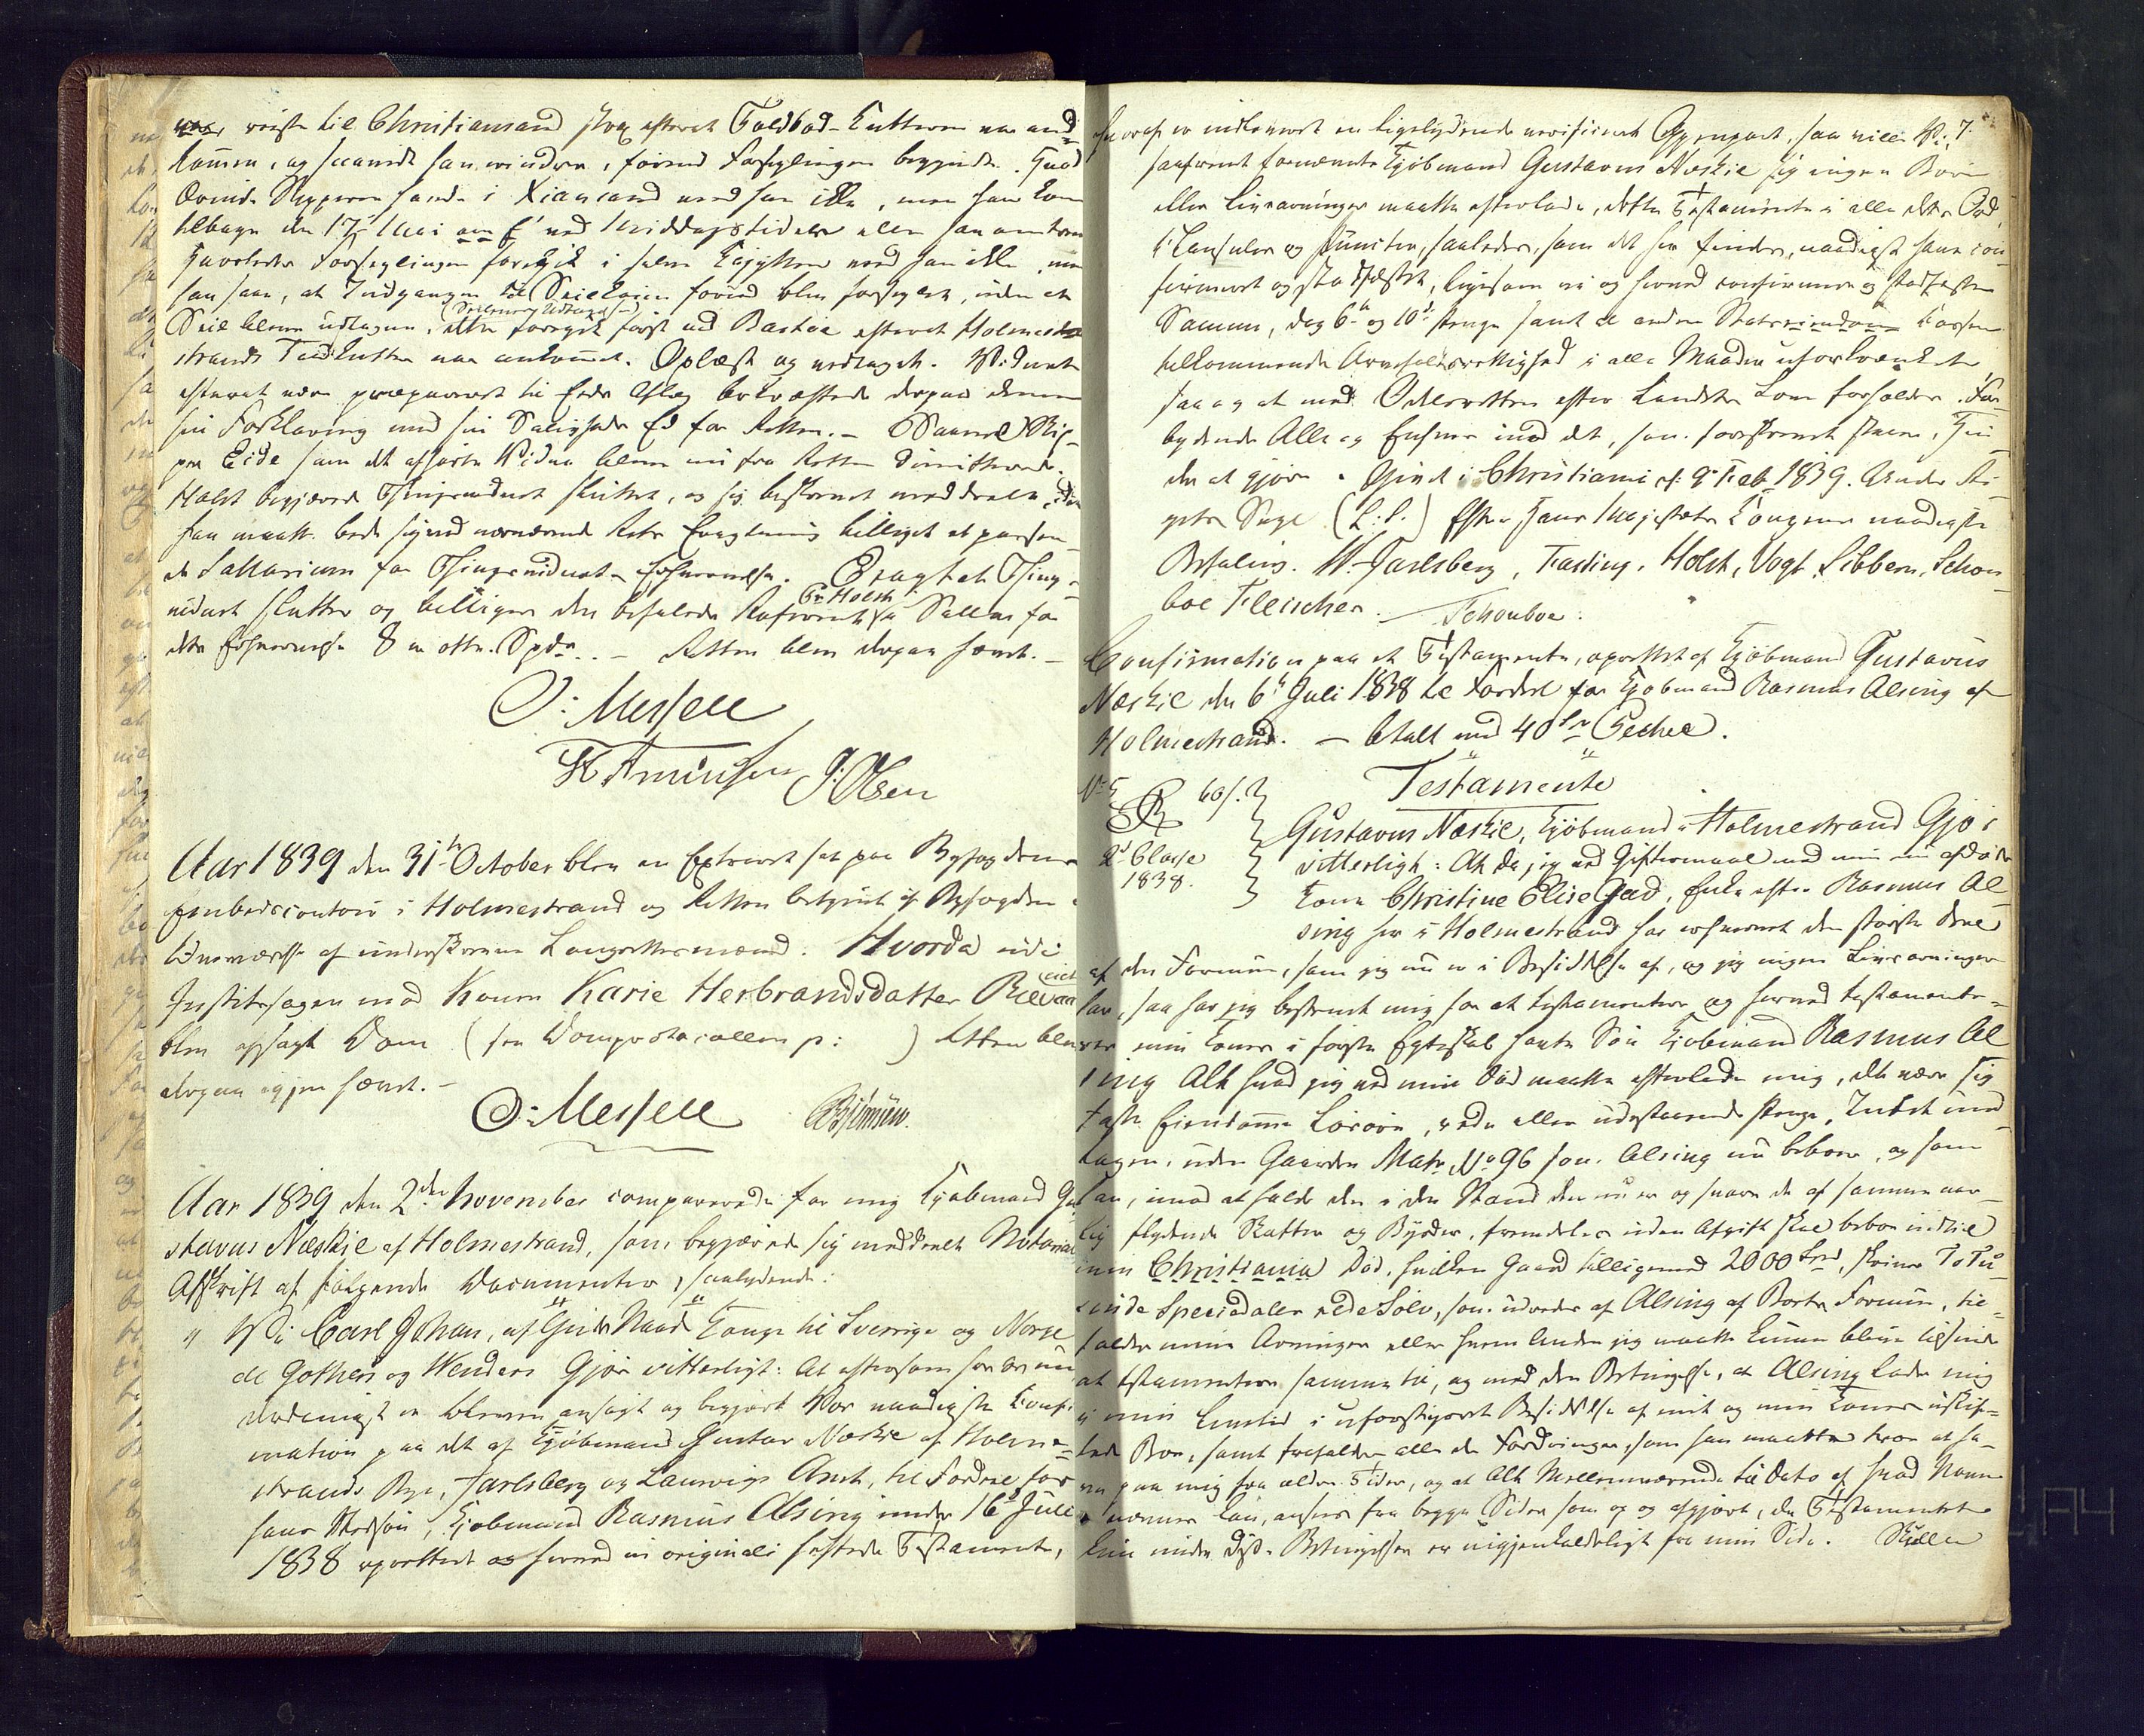 reiste til Christiansand strax efterat Toldbod-Kutteren var an-
kommen, og saavidt han erindrer, førend Forseglingen begyndte. Hvad
Skipperen havde i Xiansand veed han ikke, men han kom
tilbage den 17de Mai ved Middagstider eller saa omtrent
Hvorledes Forseglingen foregik i selve veed han ikke, men
han saae, at Indgangen til Seilkøien forud blev forseglet, uden at
Seil bleve udtagne, dette foregik først ved Bastøe efterat Holme-
strands Toldkutter var ankommet. Oplæst og vedtaget. Vidnet
efterat være præpareret til Eeds Aflæg bekræftede derpaa denne
sin Forklaring med sin Saligheds Ed for Retten. –
paa Eide som det afhørte Vidne bleve nu fra Retten dimitteret.
Holst begjærede Thingsvidnet sluttet, og sig beskrevet meddeelt,
han maatte bede sig ved nærværende Retts Eragtning billiget et passen-
de Sallarium for Thingsvidnets Erhvervelse. Eragtet Things-
vidnet sluttes og billiges den befalede Hr Holst i Sallar for
dets Erhvervelse 8 er otte Spdr. – Retten blev derpaa hævet. –
O: Messell
H Amundsen J: Olsen
Aar 1839 den 31te October blev en Extraret sat paa Byfogdens
Embedscontoir i Holmestrand og Retten betjent af Byfogden i
Overværelse af underskrevne Laugrettesmænd. Hvorda udi
Justitssagen mod Konen Karie Herbrandsdatter
blev afsagt Dom (see Domprotocollen p: ) Retten blev
derpaa igjen hævet. –
O: Messell
Aar 1839 den 2den November comparerede for mig Kjøbmand Gu-
stavus Næskie af Holmestrand, som begjærede sig meddeelt Notarial
Afskrift af følgende Documenter, saalydende:
" Vi Carl Johan, af Guds Naade Konge til Sverrige og Norge
de Gothers og Wenders Gjør vitterligt: At eftersom hos Os nu
underdanigst er bleven ansøgt og begjært Vor naadigste Confir-
mation paa det af Kjøbmand Gustav Næskie af Holme-
strands Bye, Jarlsberg og Laurvigs Amt, til Fordeel for
hans Stedsøn, Kjøbmand Rasmus Alsing under 16de Juli
1838 oprettede og herved in originali heftede Testamente,
hvoraf er indleveret en ligelydende verificeret Gjenpart, saa ville Vi, 7.
saafremt fornævnte Kjøbmand Gustavus Næskie sig ingen Børn
eller Livsarvinger maatte efterlade, dette Testamente i alle dets Ord
Clausuler og Puncter, saaledes, som det her findes, naadigst have con-
firmeret og stadfæstet, ligesom vi og herved confirmere og stadfæste
Samme, dog 6te og 10de Penge samt de andre Statseiendom Kassen
tilkommende Arvefaldsrettighed i alle Maader uforkrænket
saa og at med Odelsretten efter Landets Lov forholdes. For-
bydende Alle og Enhver imod det, som foreskrevet staaer, Hin-
der at gjøre. Givet i Christiania d: 9de Feb 1839. Under Ri-
gets Segl (L:S.) Efter Hans Majestæts Kongens naadigste
Befaling. W. Jarlsberg, Fasting, Holst, Vogt, Sibbern, Schou-
boe Fleischer. – Schouboe.
Confirmation paa et Testamente, oprettet af Kjøbmand Gustavus
Næskie den 6te Juli 1838 til Fordeel for Kjøbmand Rasmus Alsing af
Holmestrand. – betalt med 40 Spd Pechel.
Testamente
No 5 60 s.
2d Classe
1838.
Gustavus Næskie, Kjøbmand i Holmestrand Gjør
vitterligt: At da jeg ved Giftermaal med min nu afdøde
Kone Christine Elise Gad, Enke efter Rasmus Al-
sing her i Holmestrand har erhvervet den største Deel
af den Formue, som jeg nu er i Besiddelse af, og jeg ingen Livsarvinger
har, saa har jeg bestemt mig for at testamentere og herved testamente-
rer min Kones i første Egteskab havte Søn Kjøbmand Rasmus Al
sing Alt hvad jeg ved min Død maatte efterlade mig, det være sig
faste Eiendomme Løsøre, rede eller udestaaende Penge, Intet und-
tagen, uden Gaarden Matr. No 96 som Alsing nu beboer, og som
han, imod at holde den i den Stand den nu er og svare de af samme aar-
lig flydende Skatter og Byrder, fremdeles uden Afgift skal beboe indtil
min Christiania Død, hvilken Gaard tilligemed 2000 Spd, skriver To Tu-
sinde Speciedaler rede Sølv, som udredes af Alsing af Boets Formue, til-
falder mine Arvinger eller hvem Anden jeg maatte kunne blive tilsinds
at testamentere samme til, og med den Betingelse, at Alsing lader mig
i min Levetid i uforstyrret Besiddelse af mit og min Kones uskif-
tede Boe, samt frafalder alle de Fordringer, som han maatte troe at ha-
ve paa mig fra ældre Tider, og at Alt Mellemværende til Dato af hvad Navn
nævnes kan, ansees fra begge Sider som op og afgjort, da Testamentet
kun under disse Betingelser er uigjenkaldeligt fra min Side. Skulle